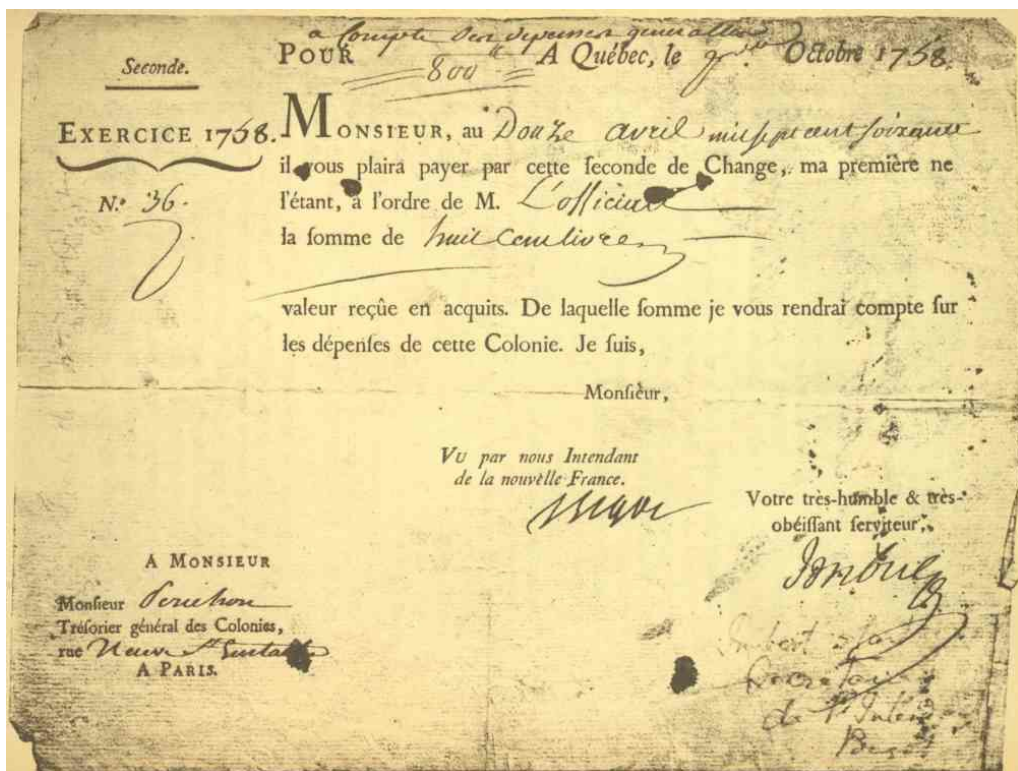 à Compte des depenses generalles
Seconde.
POUR 800ᵗᵗ A Québec, le Octobre 1758.
EXERCICE 1758.
MONSIEUR, au Douze avril mil sept cent soixante
il vous plaira payer par cette ſeconde de Change, ma première ne
N.º 36.
l'étant, à l'ordre de M. L'officiaux
la ſomme de huit Cent livres
valeur reçûe en acquits. De laquelle ſomme je vous rendrai compte ſur
les dépenſes de cette Colonie. Je ſuis,
Monſieur,
VU par nous Intendant
de la nouvelle France.
Bigot
Votre très-humble & très-
obéiſſant ſerviteur,
Imbert
A MONSIEUR
Monſieur Perichon
Tréſorier général des Colonies,
rue Neuve St Eustache
A PARIS.
Imbert
Secrétaire
de l'Inten
Bigot